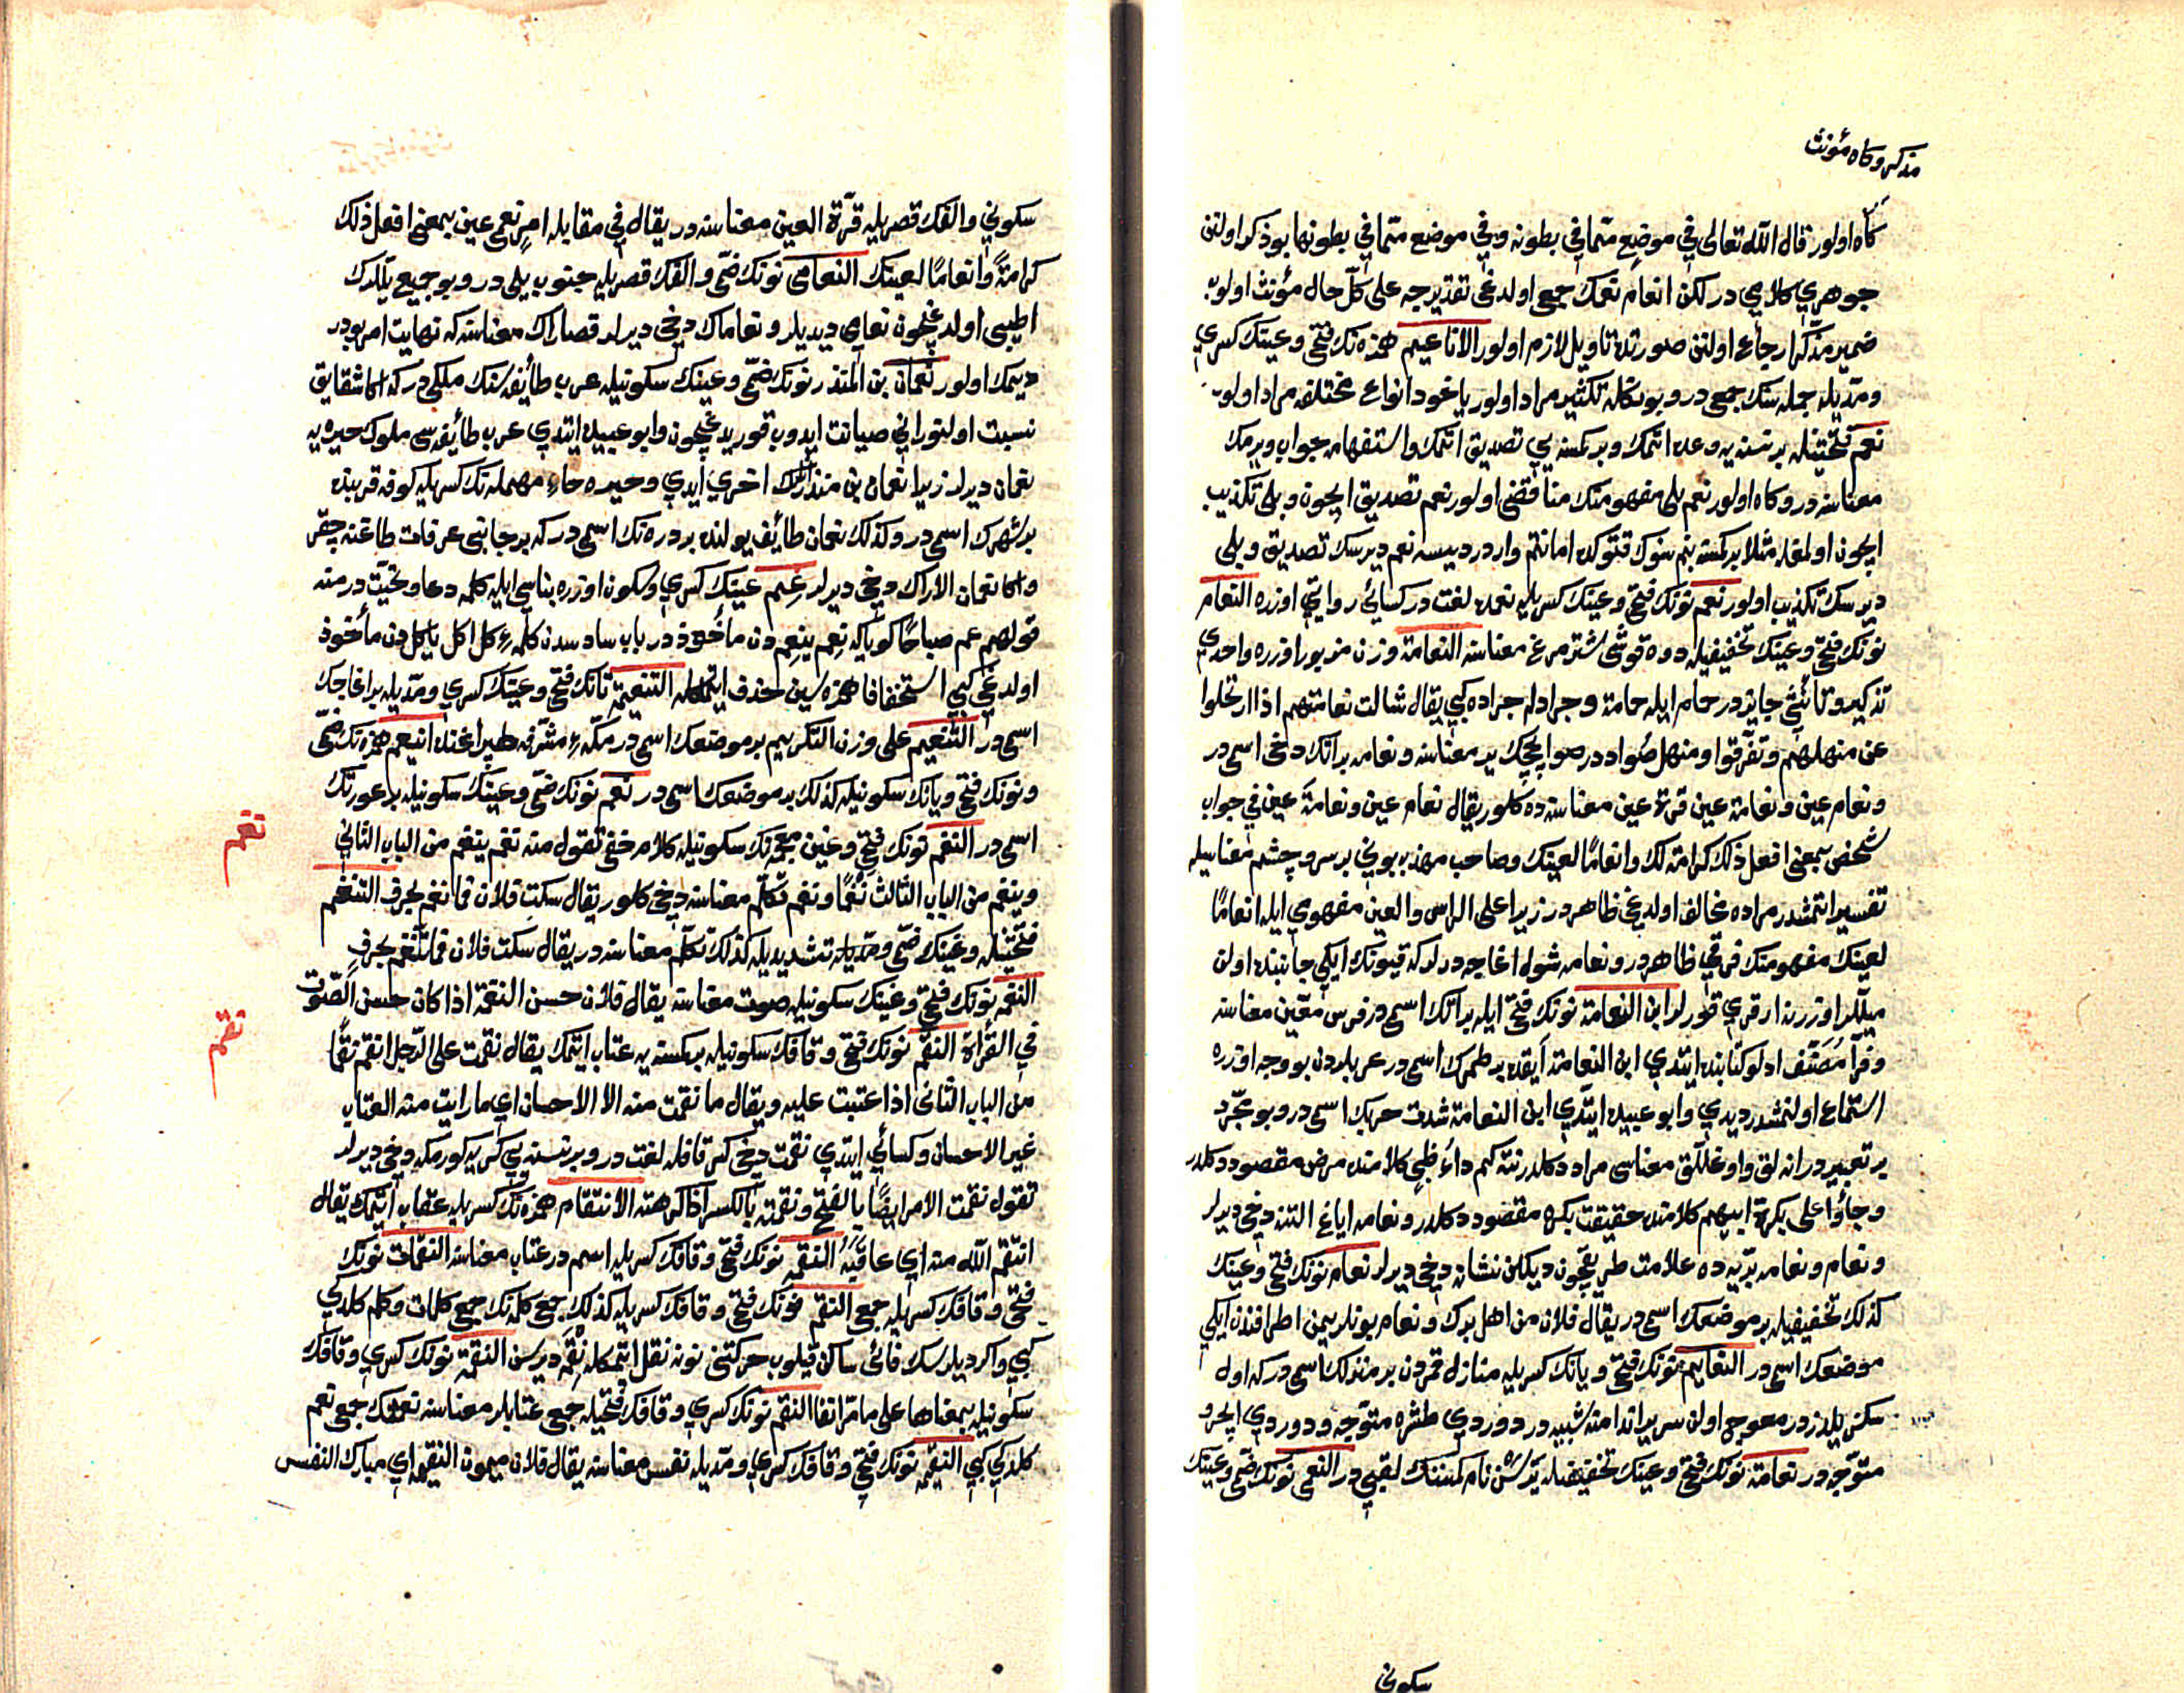 مذكر وكاه مؤنث
كاه اولور قال الله تعالى في موضع ممّا في بطونه وفي موضع ممّا في بطونها بو ذكر اولنن
جوهري كلامي در لكن انعام نعمك جمعى اولدغى تقديرجه على كلّ حال مؤنث اولوب
ضمير مذكر راجع اولنن صورتده تاويل لازم اولور الاناعيم همزه نك فتحى وعينك كسري
ومدّيله جمله سنك جمعى در وبو شكله تكثير مراد اولور ياخود انواع مختلفه مراد اولوب
نعم فتحتينله بر نسنه يه وعده اتمك وبر كمسنه يي تصديق اتمك واستفهامه جواب ويرمك
معناسنه در وكاه اولور نعم بلى مفهومنك مناقضى اولور نعم تصديق ايچون وبلى تكذيب
ايچون اولمغله مثلا بر كمسنه بنم سنوك قتوكده امانتم وار در ديسه نعم ديرسك تصديق وبلى
ديرسك تكذيب اولور نعم نونك فتحى وعينك كسريله نعمده لغت در كسائي روايتي اوزره النعام
نونك فتحى وعينك تخفيفيله دوه قوشى شترمرغ معناسنه النعامة وزن مزبور اوزره واحدي
تذكير وتأنيثى جائز در حمام ايله حمامة وجراد ايله جراده كبي يقال شالت نعامتهم اذا ارتحلوا
عن منهلهم وتفرّقوا ومنهل صواد در صو ايچجك ير معناسنه ونعامه بر اتك دخى اسمى در
ونعام عين ونعامة عين قرة عين معناسنه ده كلور يقال نعام عين ونعامة عين في جواب
شخص بمعنى افعل ذلك كرامة لك وانعامًا لعينك وصاحب مهذب بوني بر سر وچشم معناسيله
تفسير اتمشدر مراده مخالف اولدغى ظاهر در زيرا على الراس والعين مفهومي ايله انعامًا
لعينك مفهومنك فرقي ظاهر در ونعامه شول اغاجه درلر كه قيونك ايكي جانبنده اولن
ميللر اوزرنه ارقري قورلر ابن النعامة نونك فتحى ايله بر اتك اسمى در فرس معيّن معناسنه
وفرّا مُصَنّف اولو كتابنده ايتدي ابن النعامة آيقده بر طمرك اسمى در عربلردن بو وجه اوزره
استماع اولنمشدر ديدي وابو عبيده ايتدي ابن النعامة شدت حربك اسمى در وبو مجرّد
بر تعبير در انه لق واوغللق معناسى مراد دكلدر نته كم داء ظبي كلامنده مرض مقصود دكلدر
وجاؤا على بكرة ابيهم كلامنده حقيقت بكره مقصود دكلدر ونعامه اياغ التنه دخى ديرلر
ونعام ونعامه بريه ده علامت طريقچون ديكلن نشانه دخى ديرلر نعام نونك فتحى وعينك
كذلك تخفيفيله بر موضعك اسمى در يقال فلان من اهل برك ونعام بونلر يمن اطرافندن ايكي
موضعك اسمى در النعايم نونك فتحى ويانك كسريله منازل قمردن بر منزلك اسمى در كه اول
سكز يلدز در معوج اولن سرير اندامنه شبيه در دوردي طشره متوجه ودوردي ايچرو
متوجه در نعامة نونك فتحى وعينك تخفيفيله بيهس نام كمسنك لقبي در النعمى نونك ضمى وعينك
سكونى
سكوني والفك قصريله قرّة العين معناسنه در يقال في مقابله امر نعمى عين بمعنى افعل ذلك
كرامةً وانعامًا لعينك النعامى نونك ضمّى والفك قصريله جنوب يلى در وبو جميع يللرك
اطيبى اولدغيچون نعامي ديديلر ونعاماك دخى ديرلر قصاراك معناسنه كه نهايت امر بو در
ديمك اولور نعمان بن المنذر نونك ضمّى وعينك سكونيله عرب طائفه سنك ملكى در كه اكا شقايق
نسبت اولنور اني صيانت ايدوب قوريدغيچون وابو عبيده ايتدي عرب طائفه سى ملوك حيره يه
نعمان ديرلر زيرا نعمان بن منذر انلرك اخري ايدي وحيره حاء مهملة نك كسريله كوفه قربنده
بر شهرك اسمى در وكذلك نعمان طائف يولنده بر دره نك اسمى در كه بر جانبى عرفات طاغنه چقر
واكا نعمان الاراك دخى ديرلر عِم عينك كسري وسكون اوزره بناسي ايله كلمه دعا وتحيّت در منه
قولهم عم صباحًا كويا كه نعم ينعم دن مأخوذ در باب سادسدن كلمه كل اكل ياكل دن مأخوذ
اولدغي كبي استخفافا همزه سين حذف ايتمكله التنعيمة تانك فتحى وعينك كسري ومدّيله بر اغاجك
اسمى در التنعيم على وزن التكريم بر موضعك اسمى در مكّه مشرّفه طپراغنده انيعم همزه نك ضمّى
ونونك فتحى ويانك سكونيله كذلك بر موضعك اسمى در نعم نونك ضمّى وعينك سكونيله بر عورتك
نغم
اسمى در النغم نونك فتحى وغين معجمة نك سكونيله كلام خفى تقول منه نغم ينغم من الباب الثاني
وينغم من الباب الثالث نغمًا ونغم تكلّم معناسنه دخى كلور يقال سكت فلان فما نغم بحرف التنغم
فتحتينله وغينك ضمّى ومدّيله تشديديله كذلك تكلّم معناسنه در يقال سكت فلان فما تنغم بحرف
النغمه نونك فتحى وغينك سكونيله صوت معناسنه يقال فلان حسن النغمة اذا كان حسن الصّوت
نقم
في القرأة النقم نونك فتحى وقافك سكونيله بر كمسنه يه عتاب ايتمك يقال نقمت على الرّجل انقم نقمًا
من الباب الثاني اذا عتبت عليه ويقال ما نقمت منه الا الاحسان اي ما رايت منه العتاب
غير الاحسان وكسائي ايتدي نقمت دخى كسر قافله لغت در وبر نسنه يي كريه كورمكه دخى ديرلر
تقول نقمت الامر ايضًا بالفتح ونقمته بالكسر اذا كرهته الانتقام همزه نك كسريله عقاب ايتمك يقال
انتقم الله منه اي عاقبه النقمه نونك فتحى وقافك كسريله اسم در عتاب معناسنه النقمات نونك
فتحى وقافك كسريله جمعى النقم نونك فتحى وقافك كسريله كذلك جمعى كلمه نك جمعى كلمات وكلم كلدكي
كبي واكر ديلرسك قافى ساكن قيلوب حركتنى نونه نقل اتمكله نقمه ديرسن النقمه نونك كسري وقافك
سكونيله بمعناها على ما مرّ انفا النقم نونك كسري وقافك فتحيله جمعى عتابلر معناسنه نعمتك جمعى نعم
كلدكي كبي النقيمه نونك فتحى وقافك كسري ومدّيله نفس معناسنه يقال فلان ميمون النقيمه اي مبارك النفس